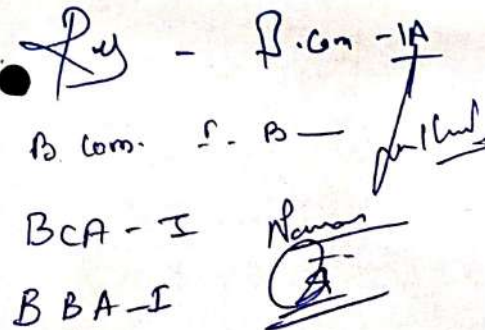 - B.com - IA
B. Com. I - B —
BCA - I Naman
BBA - I